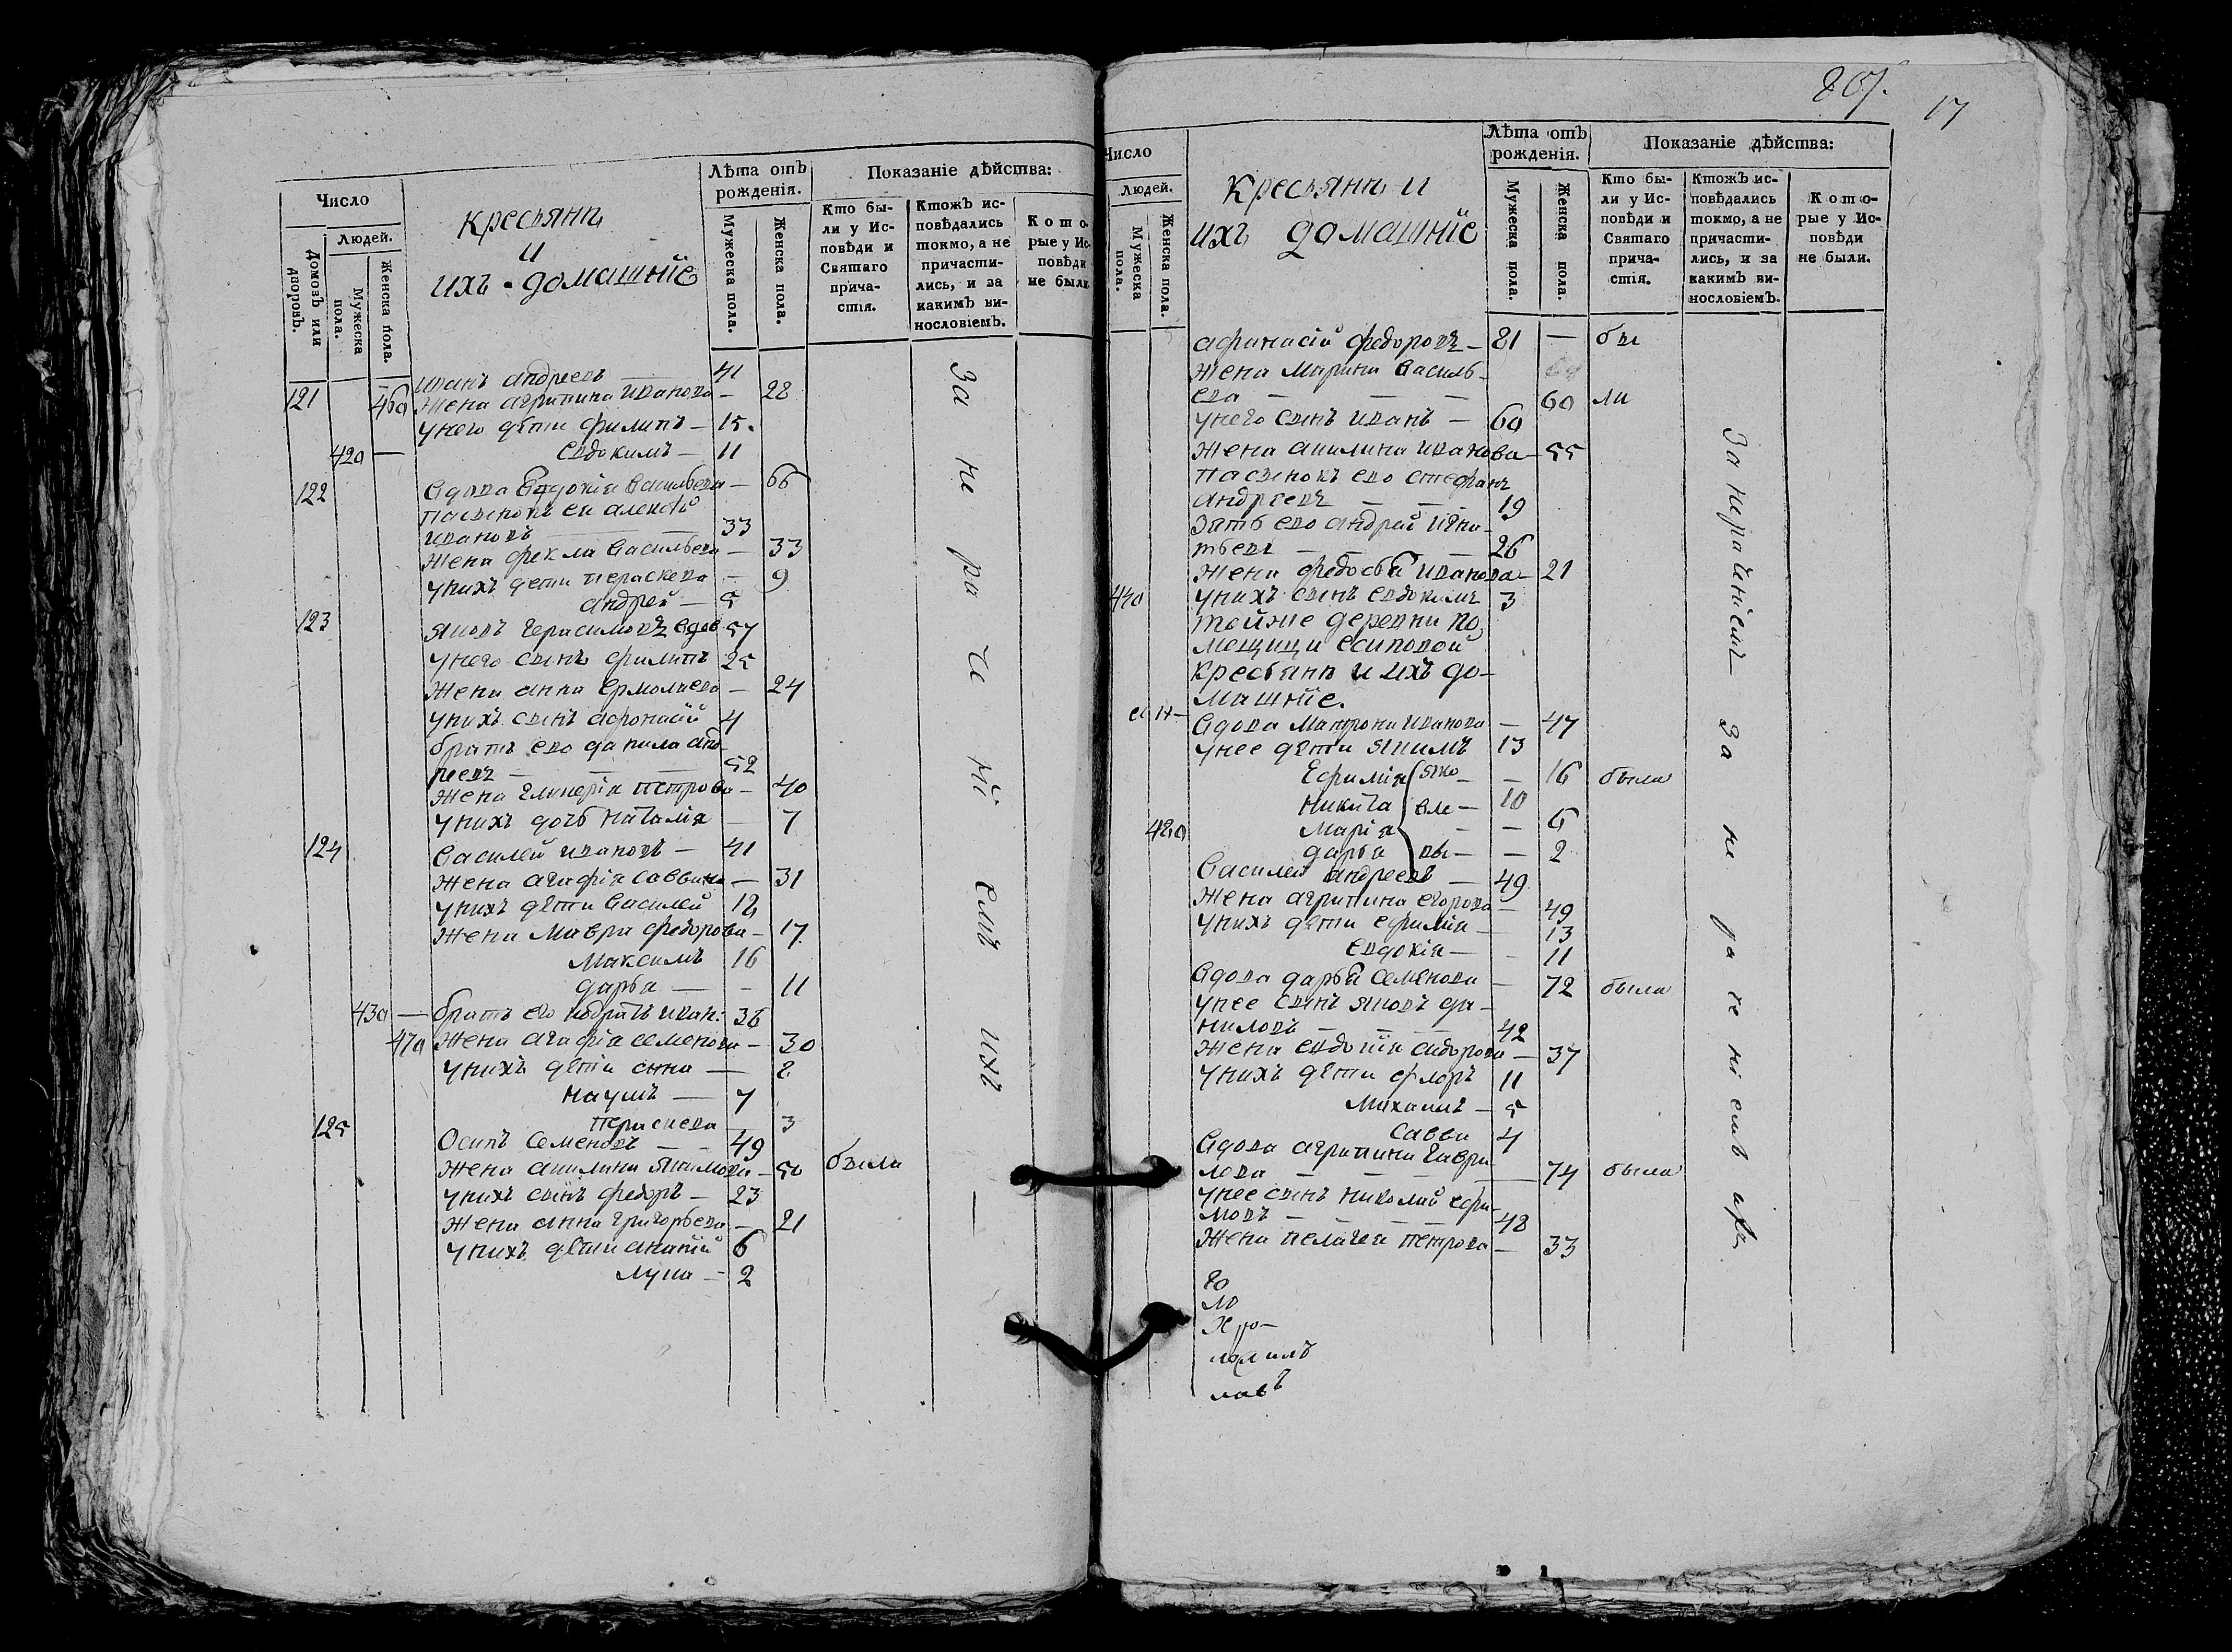 Число
Людей.
Домовъ или дворовъ.
Мужеска пола.
Женска пола.
крестьянѣ
и
ихъ домашніе
Лѣта отъ рожденія.
Мужеска пола.
Женска пола.
Показаніе дѣйства:
Кто бы-
ли у Ис-
повѣди и
Святаго
прича-
стія.
Ктожъ ис-
повѣдались
токмо, а не
причасти-
лись, и за
какимъ ви-
нословіемъ.
Кото-
рые у Ис-
повѣди
не были.
Иванъ Андреевъ — 41
121 460 Жена Агрипина Иванова — 28
У него дѣти Филипъ — 15
420 — Евдокимъ — 11
122 Вдова Евдокія Васильева — 66
Пасынокъ ея Алексѣй
Ивановъ 33
Жена Фекла Васильева — 33
У нихъ дети Пераскева — 9
Андрей — 5
123 Яковъ Герасимовъ вдов 57
У него сынъ Филипъ 25
Жена Анна Ермолаева — 24
У нихъ сынъ Афонасій 4
братъ ево Данила Анд-
реевъ — 52
Жена Гликерія Петрова — 40
У нихъ дочь Наталія — 7
124 Василей Ивановъ — 41
Жена Агафія Саввина — 31
У нихъ дѣти Василей 12
Жена Мавра Федорова — 17
Максимъ 16
Дарья — - 11
430 — братъ его Кодратъ Иван: 38
470 Жена Агафія Семенова — 30
У нихъ дѣти Анна — 8
Наумъ — 7
Пераскева 3
125 Осипъ Семеновъ — 49
Жена Акилина Якимова — 50 была
У нихъ сынъ Федоръ — 23
Жена Анна Григорьева — 21
У нихъ дѣти Ананій 6
Лука — 2
За не ра че ні емъ ихъ
207.
17
Число
Людей.
Мужеска пола.
Женска пола.
крестьянѣ и
ихъ домашніе
Лѣта отъ рожденія.
Мужеска пола.
Женска пола.
Показаніе дѣйства:
Кто бы-
ли у Ис-
повѣди и
Святаго
прича-
стія.
Ктожъ ис-
повѣдались
токмо, а не
причасти-
лись, и за
какимъ ви-
нословіемъ.
Кото-
рые у Ис-
повѣди
не были.
Афанасій Федоровъ — 81 — бы
Жена Марина Василь-
ева — — — 60 ли
У него сынъ Иванъ — 60
Жена Акилина Иванова — 55
Пасынокъ ево Стефанъ
Андреевъ — — 19
Зять ево Андрей Игна-
тьевъ — — 26
Жена Федосья Иванова — 21
440 У нихъ сынъ Евдокимъ 3
Той же деревни по
мещицы Есиповой
крестьянѣ и ихъ до-
машніе.
Вдова Матрона Иванова — 47
У нее дѣти Якимъ 13
Ефимія Яко — — 16 была
Никита вле — 10
480 Марія — — 5
Дарья вы — — 2
Василей Андреевъ — 49
Жена Агрипина Егорова — 49
У нихъ дѣти Ефимія — 13
Евдокія — - 11
Вдова Дарья Семенова — 72 была
У нее сынъ Яковъ Да-
ниловъ — — — 42
Жена Евдокія Сидорова — 37
У нихъ дѣти Флоръ 11
Михаилъ — 5
Савва 4
Вдова Агрипина Гаври-
лова — — — 74 была
У нее сынъ Николай Ефи-
мовъ — — — 48
Жена Пелагея Петрова — 33
За нераченіемъ За не ра че ні емъ ихъ